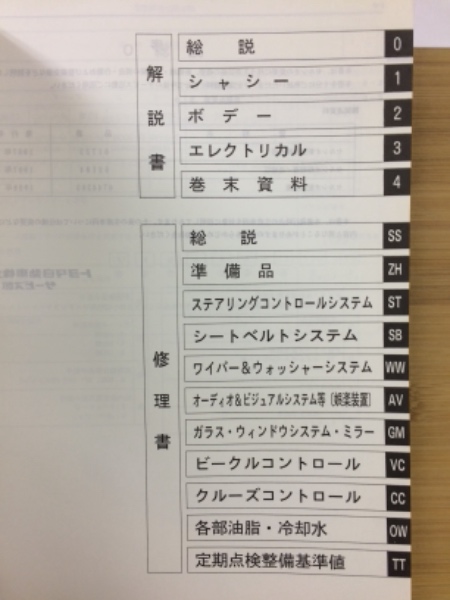 解説書
総説 0
シャシー 1
ボデー 2
エレクトリカル 3
巻末資料 4
修理書
総説 SS
準備品 ZH
ステアリングコントロールシステム ST
シートベルトシステム SB
ワイパー&ウォッシャーシステム WW
オーディオ&ビジュアルシステム等〔娯楽装置〕 AV
ガラス・ウィンドウシステム・ミラー GM
ビークルコントロール VC
クルーズコントロール CC
各部油脂・冷却水 OW
定期点検整備基準値 TT